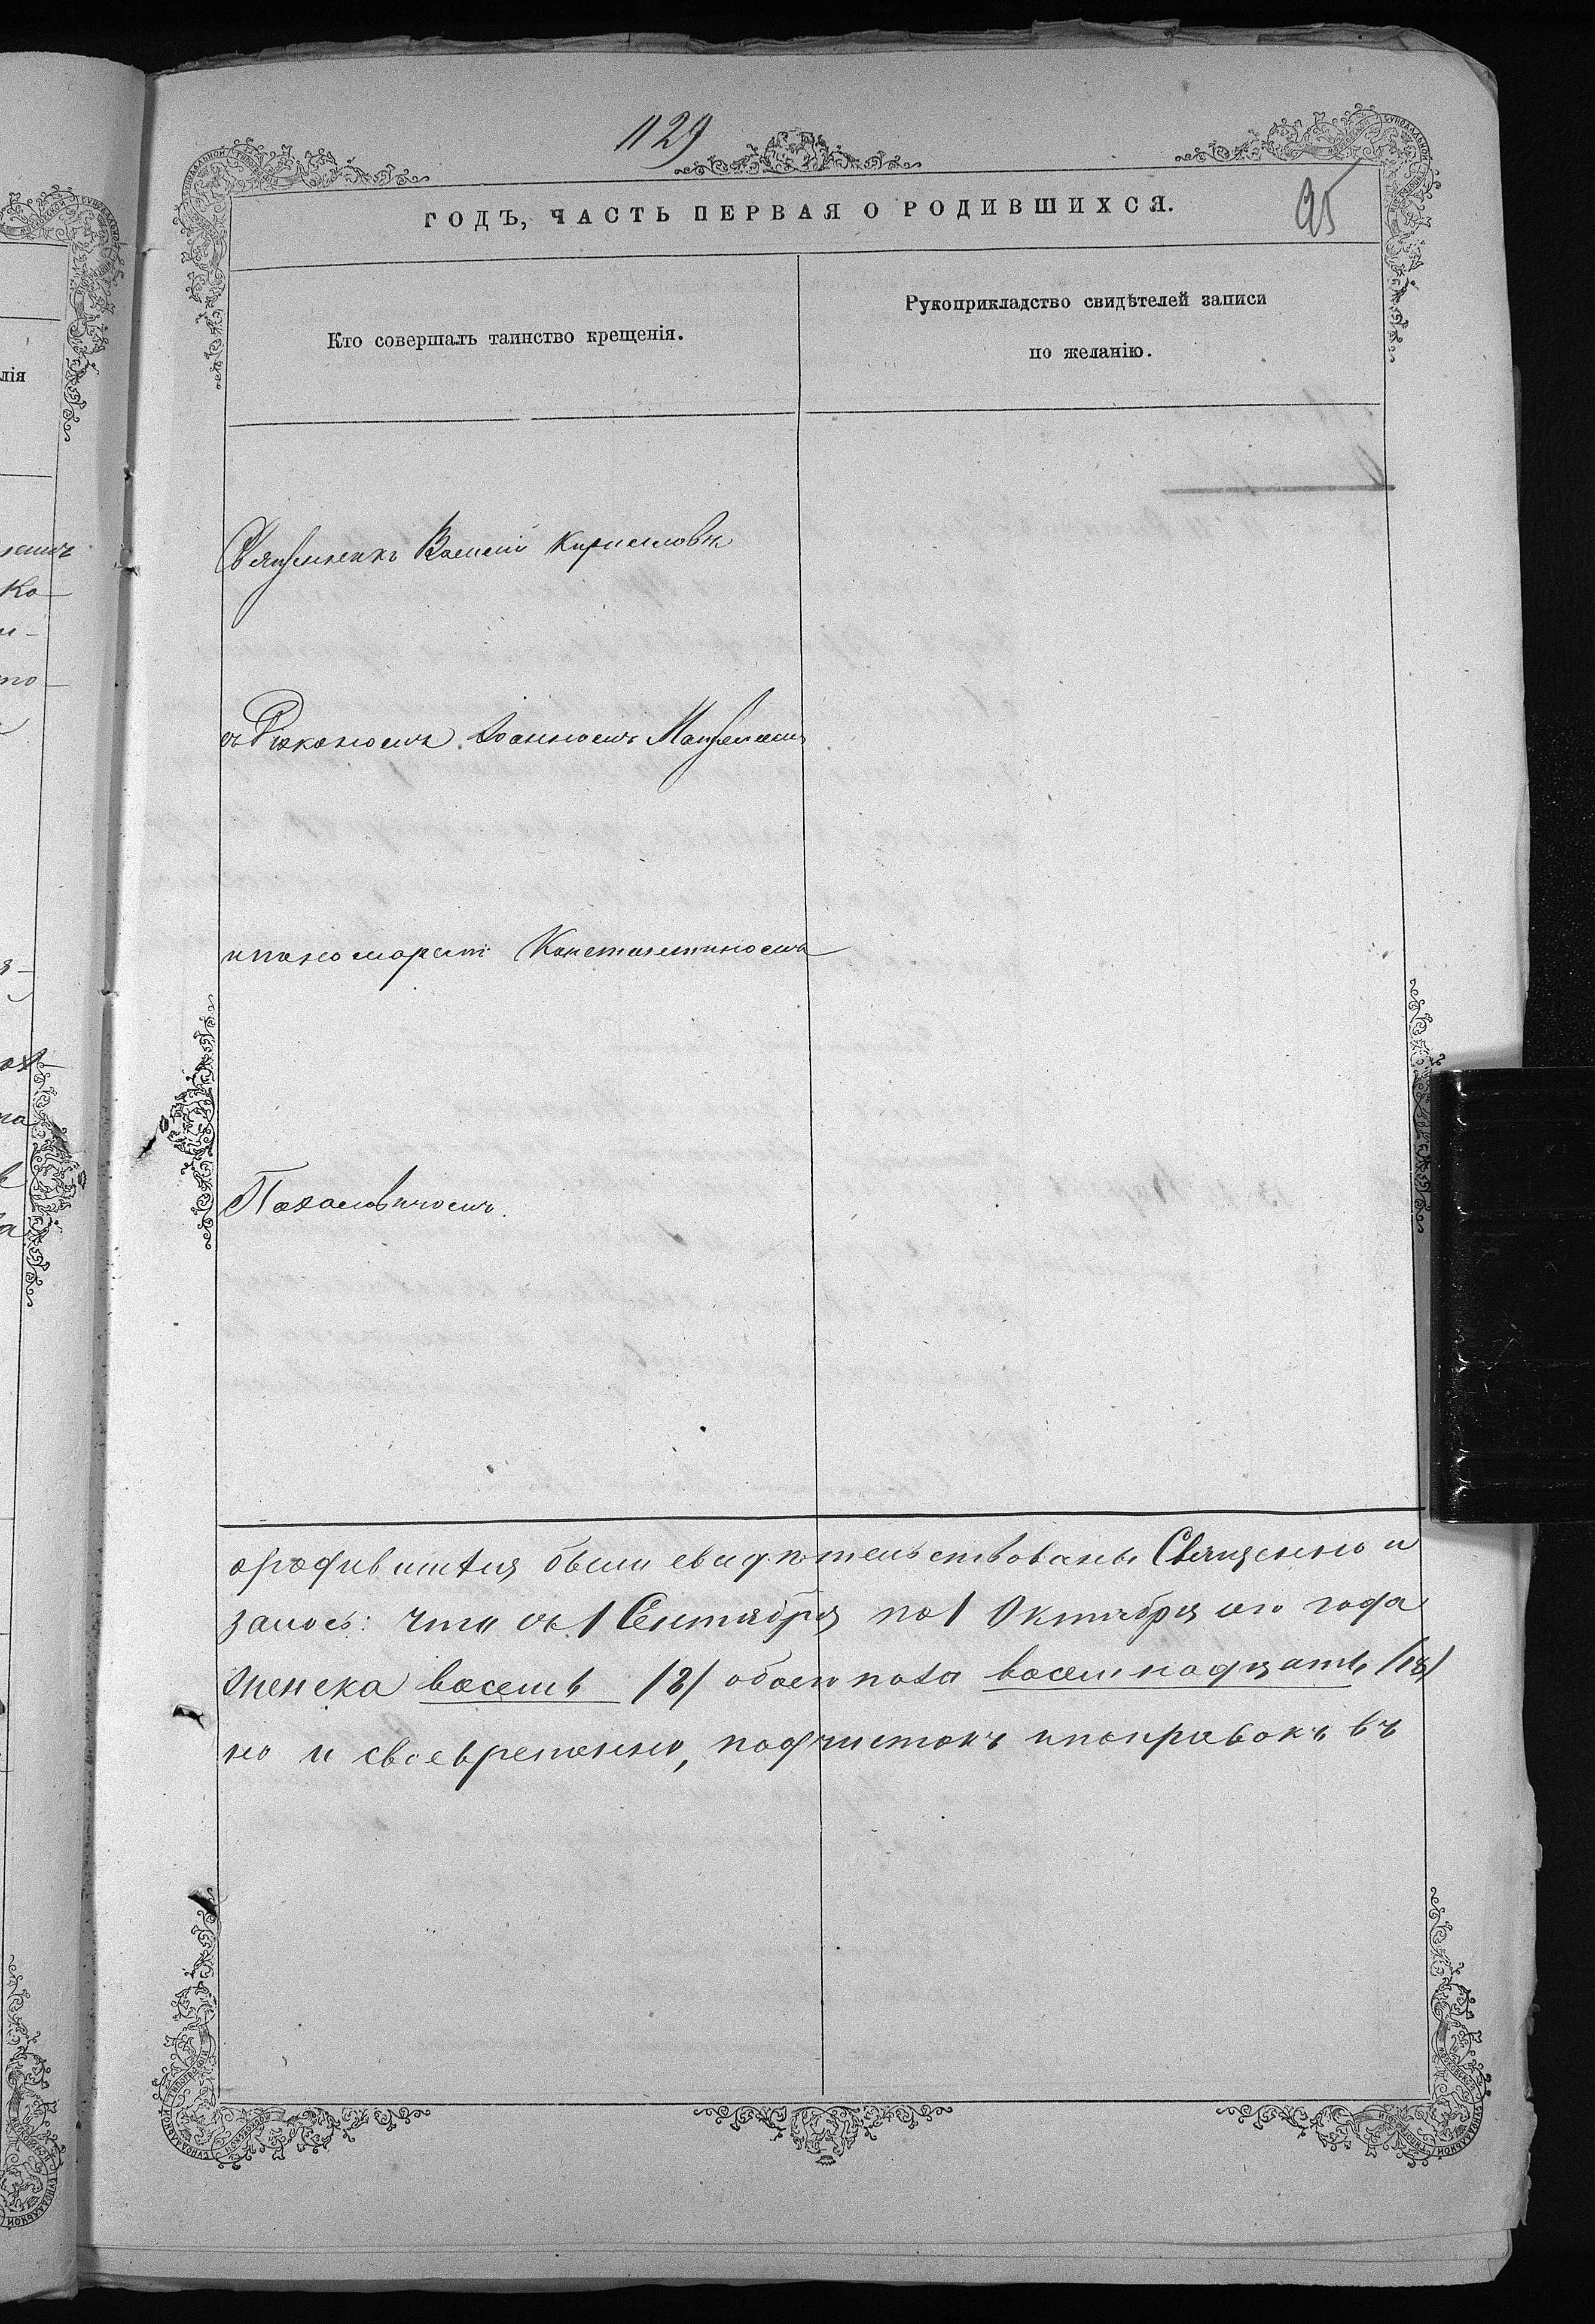 1129
95
ГОДЪ, ЧАСТЬ ПЕРВАЯ О РОДИВШИХСЯ.
Кто совершалъ таинство крещенія.
Рукоприкладство свидѣтелей записи
по желанію.
Священникъ Василій Кирилловъ
съ Діакономъ Іоанномъ
и пономаремъ Константиномъ
о родившихся были свидѣтельствованы Священно и
что съ 1 Сентября по 1 Октября сего года
женска восемь /8/ обоего пола восемнадцать /18/
но и своевременно, подчистокъ и поправокъ въ